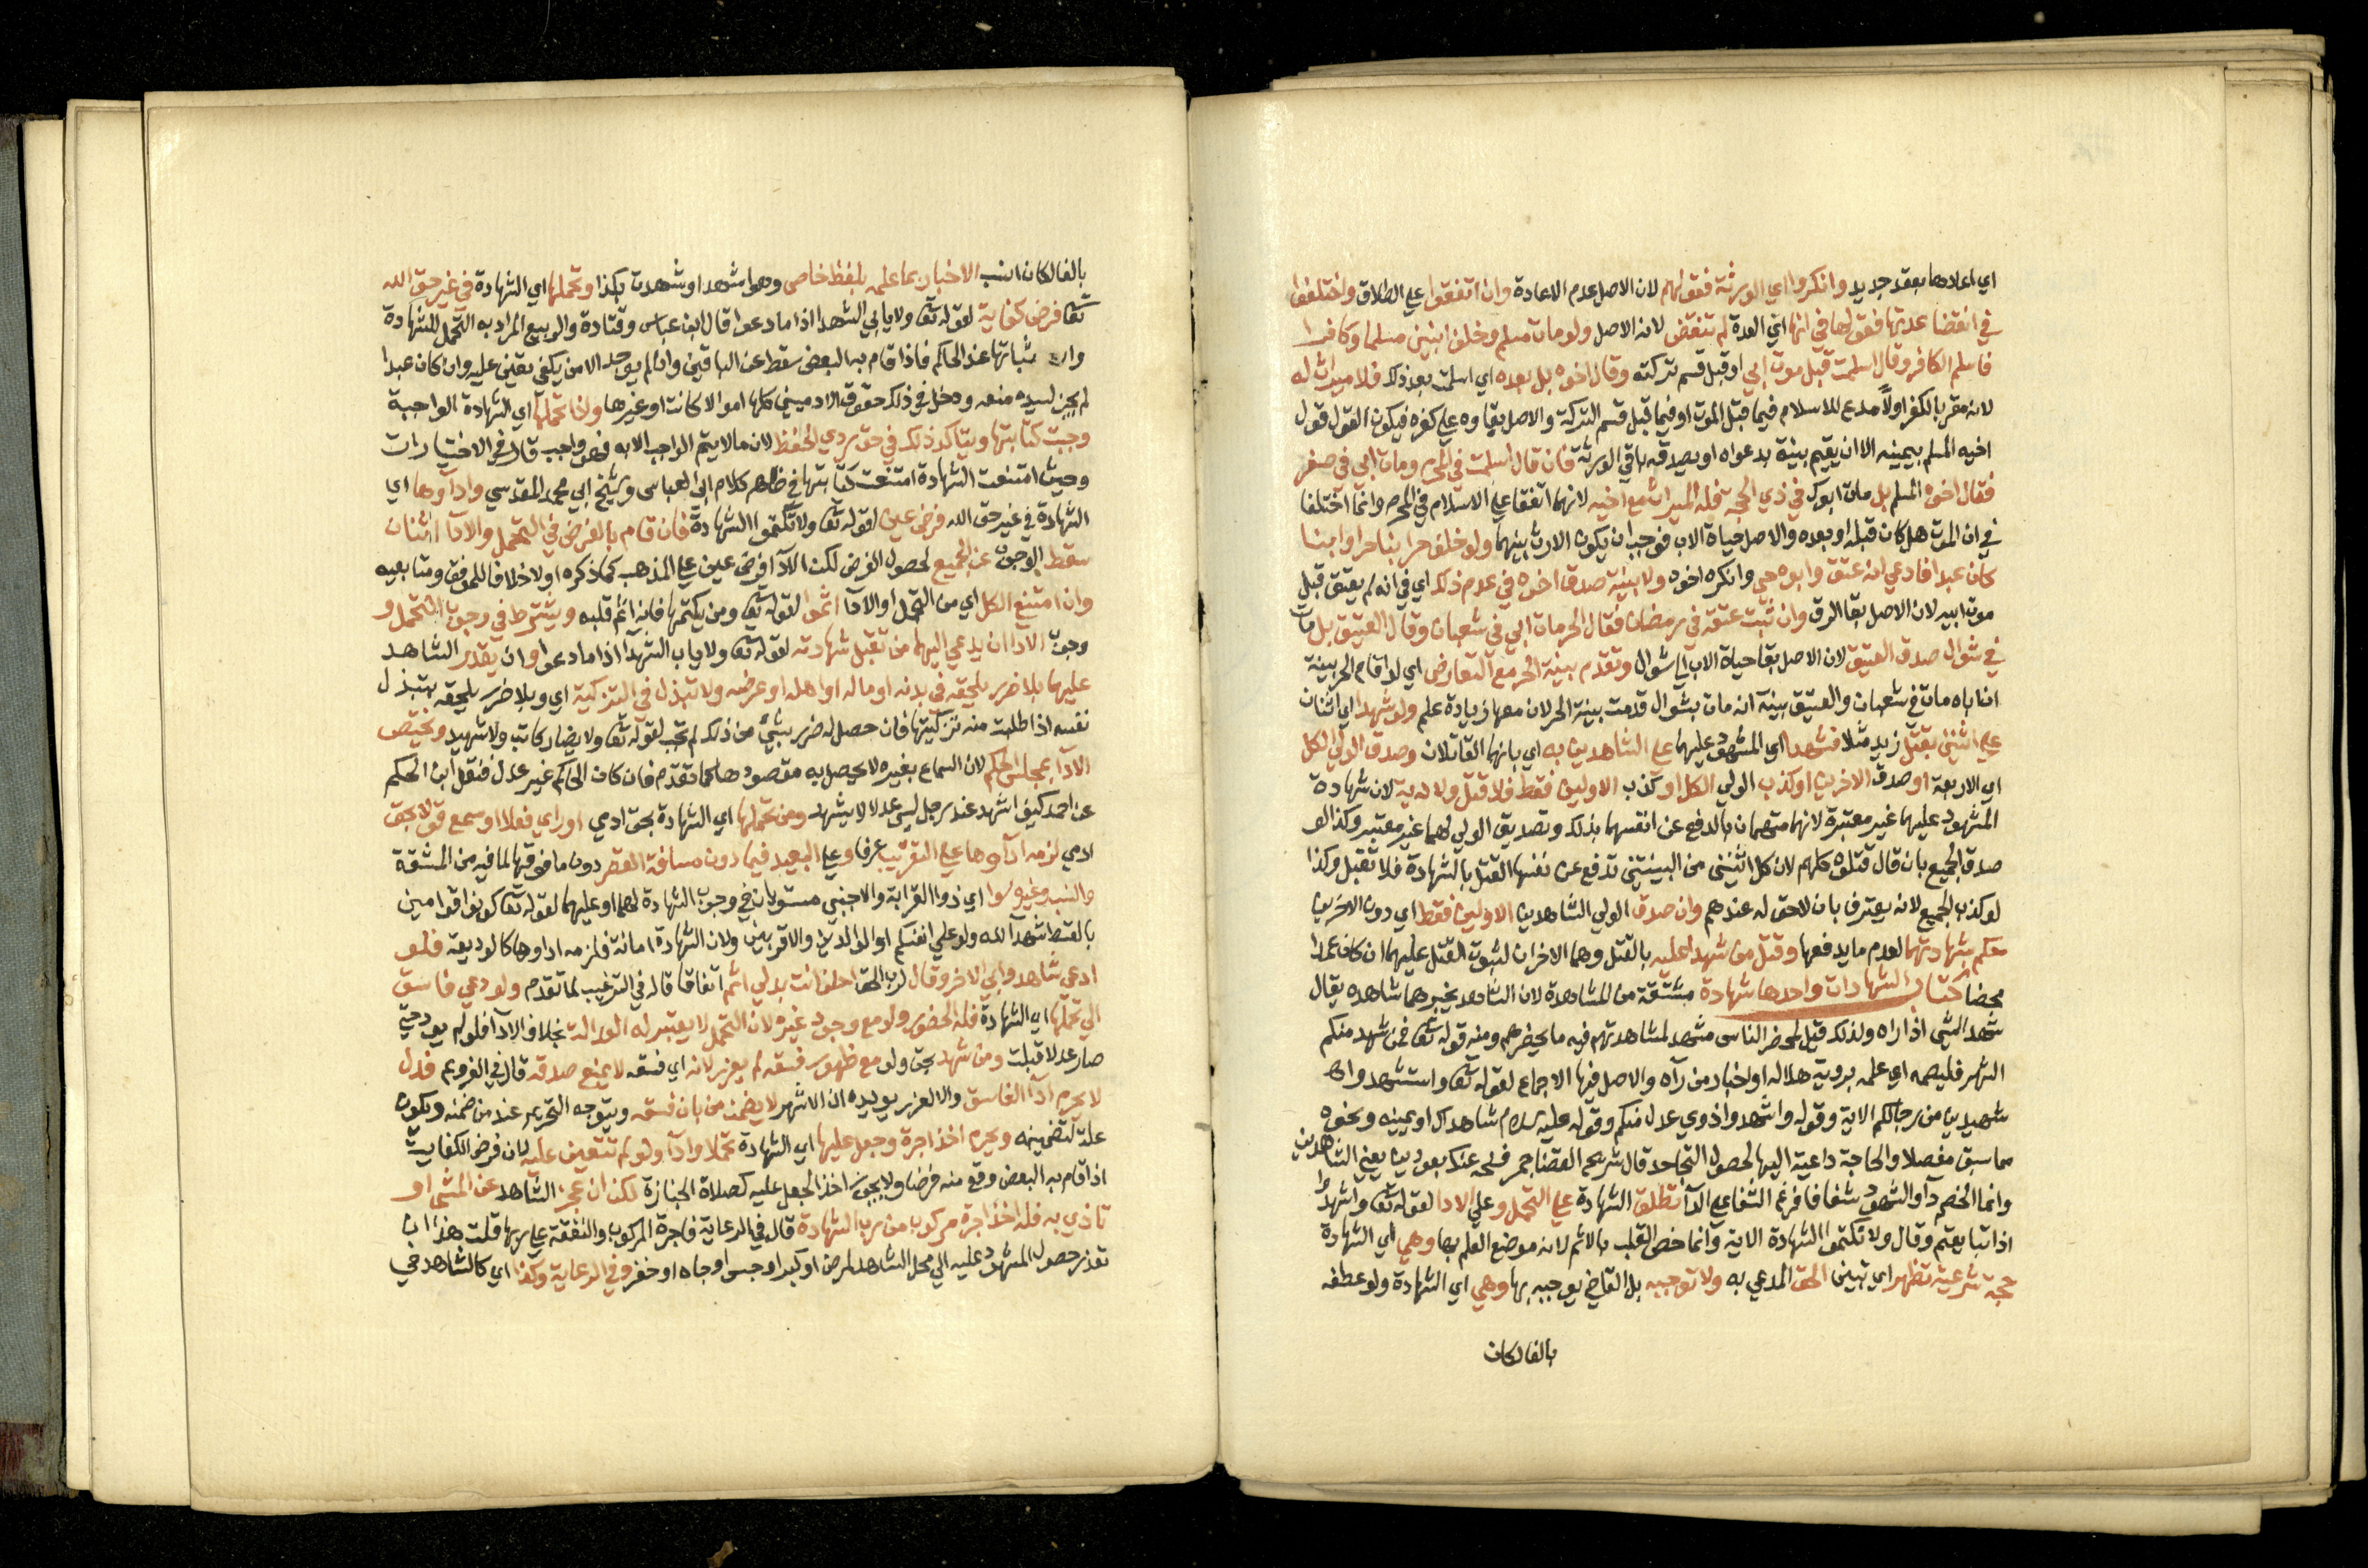 اي اعادها بعقد جديد وانكروا اي الورثة فقولهم لان الاصل عدم الاعادة وان اتفقوا علي الطلاق واختلفوا
في انقضا عدتها فقولها في انها اي العدة لم تنقض لانه الاصل ولو مات مسلم وخلف ابنين مسلما وكافرا
فاسلم الكافر وقال اسلمت قبل موت ابي او قبل قسم تركته وقال اخوه بل بعده اي اسلمت بعد ذلك فلا ميراث له
لانه مقر بالكفر اولاً مدع للاسلام فيما قبل الموت او فيما قبل قسم التركة والاصل بقاوه علي كفره فيكون القول قول
اخيه المسلم بيمينه الا ان يقيم بينة بدعواه او يصدقه باقي الورثة فان قال اسلمت في المحرم ومات ابي في صفر
فقال اخوه المسلم بل مات ابوك في ذي الحجة فله الميراث مع اخيه لانهما اتفقا علي الاسلام في المحرم وانما اختلفا
في ان الموت هل كان قبله او بعده والاصل حياة الاب فوجب ان يكون الارث بينهما ولو خلف حرا ابنا حرا وابنا
كان عبدا فادعي انه عتق وابوه حي وانكره اخوه ولا بينة صدق اخوه في عدم ذلك اي في انه لم يعتق قبل
موت ابيه لان الاصل بقا الرق وان ثبت عتقه في رمضان فقال الحر مات ابي في شعبان وقال العتيق بل مات
في شوال صدق العتيق لان الاصل بقا حياة الاب الي شوال وتقدم بينة الحر مع التعارض اي لو اقام الحر بينة
ان اباه مات في شعبان والعتيق بينة انه مات بشوال قدمت بينة الحر لان معها زيادة علم ولو شهدا اي اثنان
علي اثنين بقتل زيد مثلا فشهدا اي المشهود عليهما علي الشاهدين به اي بانهما القاتلان وصدق الولي الكل
اي الاربعة او صدق الاخرين او كذب الولي الكل او كذب الاولين فقط فلا قتل ولا دية لان شهادة
المشهود عليهما غير معتبرة لانهما متهمان بالدفع عن انفسهما بذلك وتصديق الولي لهما غير معتبر وكذا لو
صدق الجميع بان قال قتلوه كلهم لان كل اثنين من البينتين تدفع عن نفسها القتل بالشهادة فلا تقبل وكذا
لو كذب الجميع لانه يعترف بان لا حق له عندهم وان صدق الولي الشاهدين الاولين فقط اي دون الاخرين
حكم بشهادتهما لعدم ما يدفعها وقتل من شهدا عليه بالقتل وهما الاخران لثبوت القتل عليهما ان كان عمدا
محضا كتاب الشهادات واحدها شهادة مشتقة من المشاهدة لان الشاهد يخبر عما شاهده يقال
شهد الشي اذا راه ولذلك قيل لمحضر الناس مشهد لمشاهدتهم فيه ما يحضرهم ومنه قوله تعا فمن شهد منكم
الشهر فليصمه اي علمه برويته هلاله او اخبار من رآه والاصل فيها الاجماع لقوله تعا واستشهدوا
شهيدين من رجالكم الاية وقوله واشهدوا ذوي عدل منكم وقوله عليه السلام شاهداك او يمينه ونحوه
مما سبق مفصلا والحاجة داعية اليها لحصول التجاحد قال شريح القضا جمر فنحه عنك بعودين يعني الشاهدين
وانما الخصم دآ والشهود شفا فافرغ الشفا علي الدآ تطلق الشهادة علي التحمل وعلي الادا لقوله تعا واشهدوا
اذا تبايعتم وقال ولا تكتموا الشهادة الاية وانما خص القلب بالاثم لانه موضع العلم بها وهي اي الشهادة
حجة شرعية تظهر اي تبين الحق المدعي به ولا توجبه بل القاضي يوجبه بها وهي اي الشهادة ولو عطفه
بالفا لكان
بالفا لكان انسب الاخبار بما علمه بلفظ خاص وهو اشهد او شهدت بكذا وتحملها اي الشهادة في غير حق الله
تعا فرض كفاية لقوله تعا ولا يابي الشهدا اذا ما دعوا قال ابن عباس وقتادة والربيع المراد به التحمل للشهادة
واثباتها عند الحاكم فاذا قام به البعض سقط عن الباقين وان لم يوجد الا من يكفي تعين عليه وان كان عبدا
لم يجز لسيده منعه ودخل في ذلك حقوق الادميين كلها اموالا كانت او غيرها واذا تحملها اي الشهادة الواجبة
وجبت كتابتها ويتاكد ذلك في حق ردي الحفظ لان ما لا يتم الواجب الا به فهو واجب قال في الاختيارات
وحيث امتنعت الشهادة امتنعت كتابتها في ظاهر كلام ابي العباس وشيخ ابي محمد المقدسي واداوها اي
الشهادة في غير حق الله فرض عين لقوله تعا ولا تكتموا الشهادة فان قام بالفرض في التحمل والادآ اثنان
سقط الوجوب عن الجميع لحصول الغرض لكن الادآ فرض عين علي المذهب كما ذكره اولا خلافا للموفق ومتابعيه
وان امتنع الكل اي من التحمل او الادآ اثموا لقوله تعا ومن يكتمها فانه اثم قلبه ويشترط في وجوب التحمل و
وجوب الادآ ان يدعي اليهما من تقبل شهادته لقوله تعا ولا ياب الشهدآ اذا ما دعوا وان يقدر الشاهد
عليهما بلا ضرر يلحقه في بدنه او ماله او اهله او عرضه ولا تبذل في التزكية اي وبلا ضرر يلحقه بتبذل
نفسه اذا طلبت منه تزكيتها فان حصل له ضرر بشي من ذلك لم تجب لقوله تعا ولا يضار كاتب ولا شهيد ويختص
الادآ بمجلس الحكم لان السماع بغيره لا يحصل به مقصودها كما تقدم فان كان الحاكم غير عدل فنقل ابن الحكم
عن احمد كيف اشهد عند رجل ليس عدلا لا يشهد ومن تحملها اي الشهادة بحق ادمي او راي فعلا او سمع قولا بحق
ادمي لزمه اداوها علي القريب عرفا وعلي البعيد فيما دون مسافة القصر دون ما فوقها لما فيه من المشقة
والنسيب وغيره سوا اي ذوا القرابة والاجنبي مستويان في وجوب الشهادة لهما او عليهما لقوله تعا كونوا قوامين
بالقسط شهدآ لله ولو علي انفسكم او الوالدين والاقربين ولان الشهادة امانة فلزمه اداوها كالوديعة فلو
ادي شاهد وابي الاخر وقال لرب الحق احلف انت بدلي اثم اتفاقا قاله في الترغيب لما تقدم ولو دعي فاسق
الي تحملها اي الشهادة فله الحضور ولو مع وجود غيره لان التحمل لا يعتبر له العدالة بخلاف الادآ فلو لم يود حتي
صار عدلا قبلت ومن شهد بحق ولو مع ظهور فسقه لم يعزر لانه اي فسقه لا يمنع صدقه قال في الفروع فدل
لا يحرم ادآ الفاسق والا لعزر يويده ان الاشهر لا يضمن من بان فسقه ويتوجه التحريم عند من ضمنه ويكون
علة لتضمينه ويحرم اخذ اجرة وجعل عليها اي الشهادة تحملا وادآ ولو لم تتعين عليه لان فرض الكفاية
اذا قام به البعض وقع منه فرضا ولا يجوز اخذ الجعل عليه كصلاة الجنازة لكن ان عجز الشاهد عن المشي او
تاذي به فله اخذ اجرة مركوب من رب الشهادة قال في الرعاية فاجرة المركوب والنفقة علي ربها قلت هذا ان
تعذر حضور المشهود عليه الي محل الشاهد لمرض او كبر او حبس او جاه او خفر وفي الرعاية وكذا اي كالشاهد في